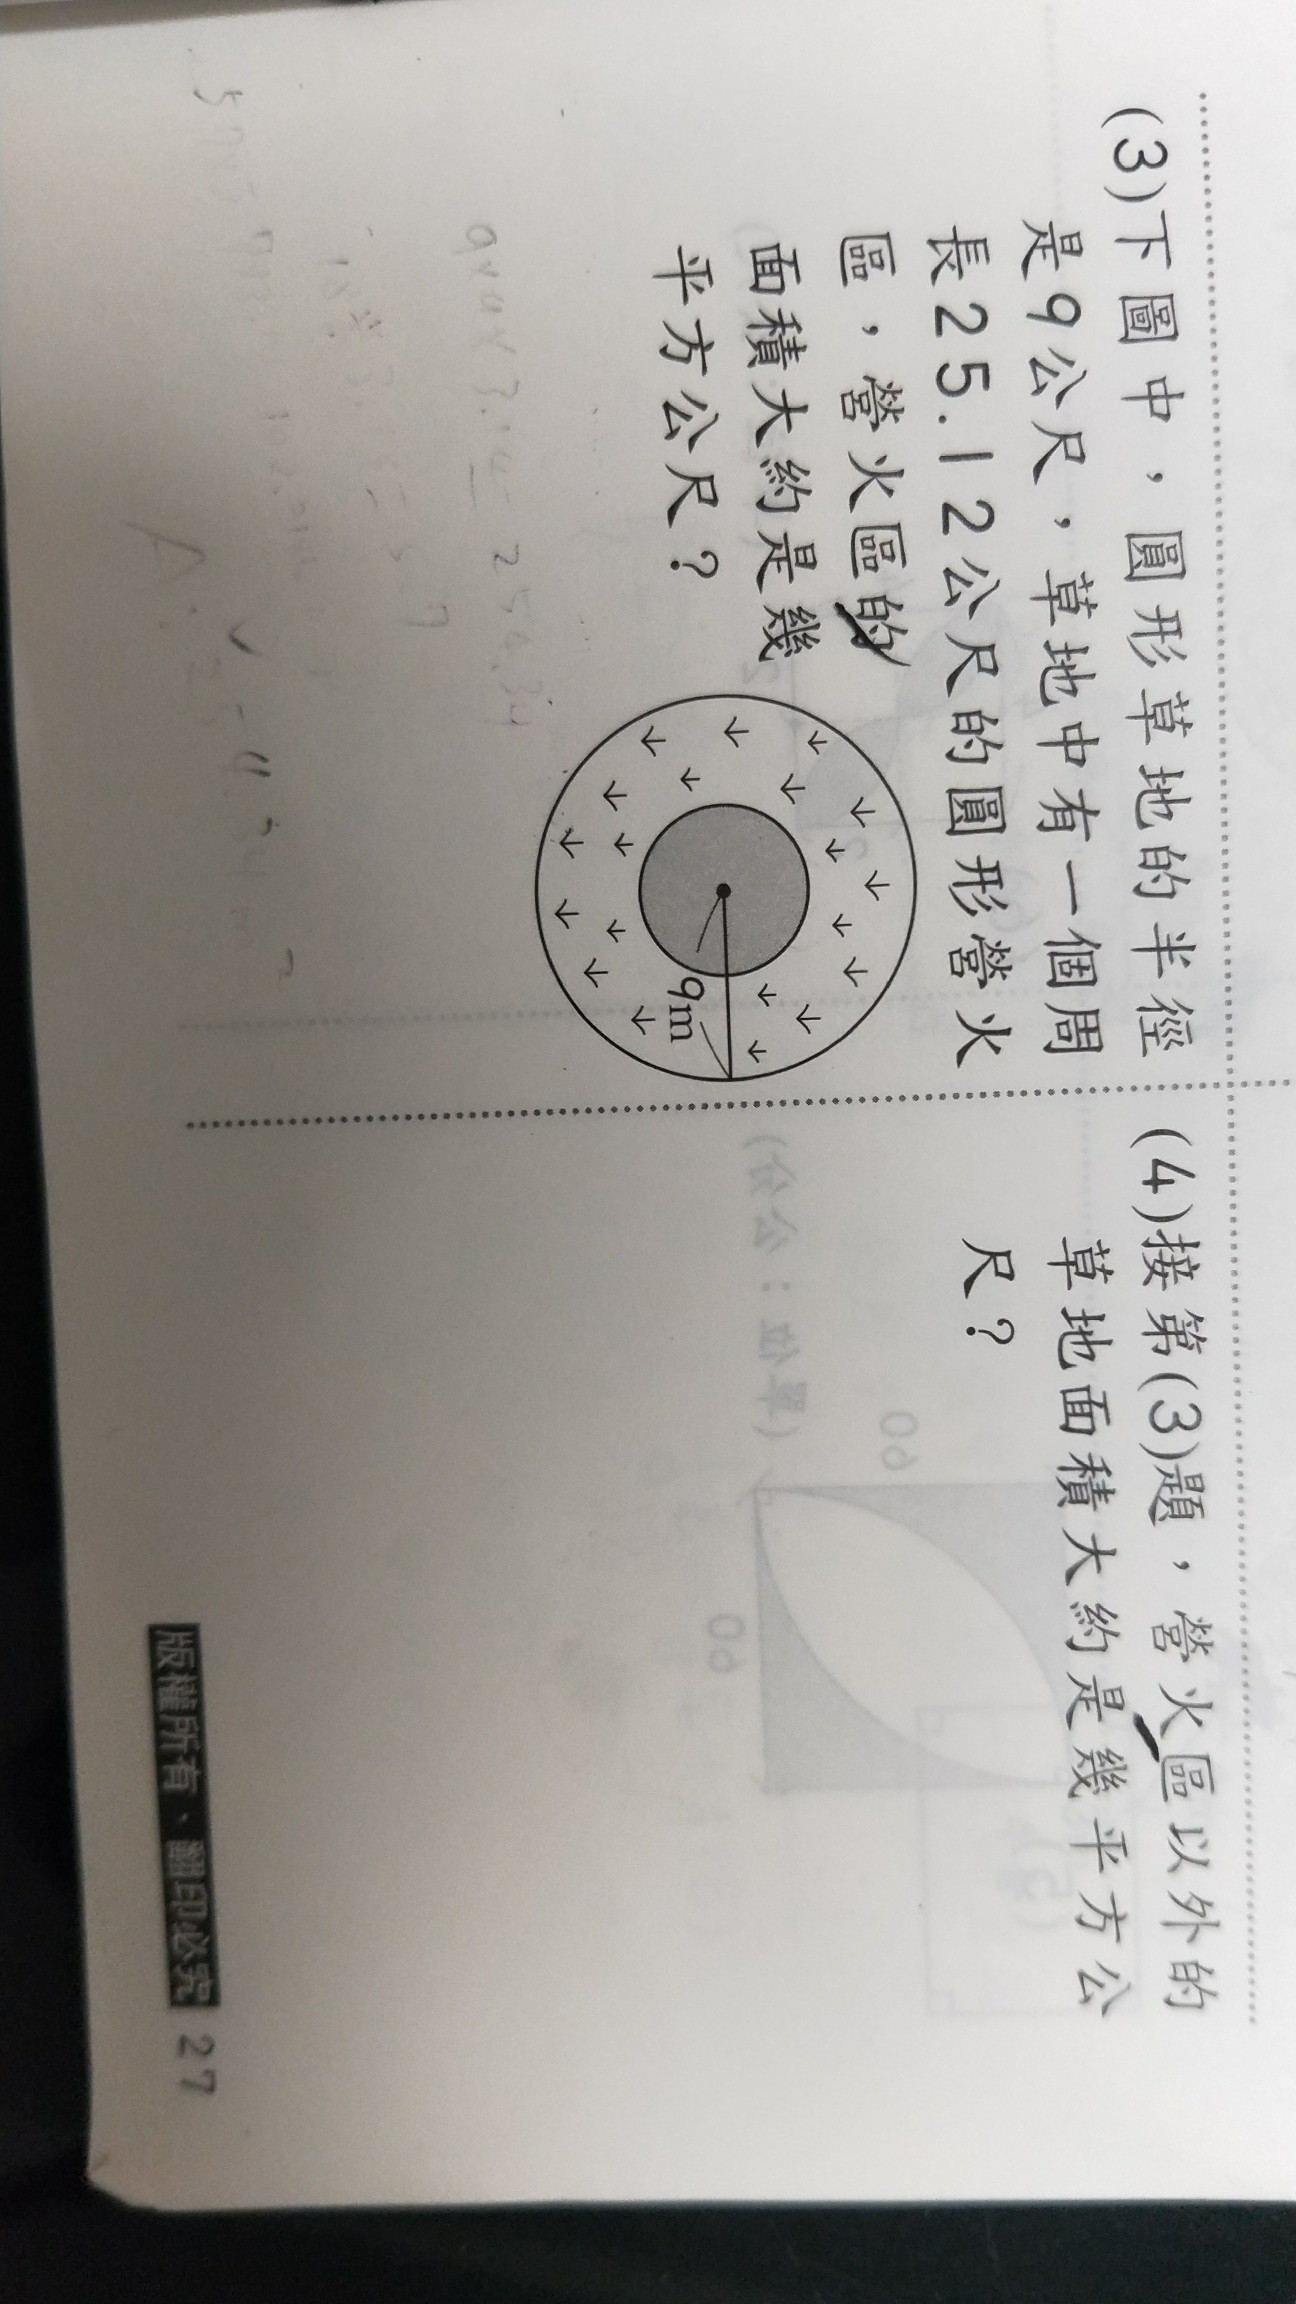 (3)下圖中，圓形草地的半徑
是9公尺，草地中有一個周
長25.12公尺的圓形營火
區，營火區的
面積大約是幾
平方公尺？
9m
(4)接第(3)題，營火區以外的
草地面積大約是幾平方公
尺？
版權所有、翻印必究 27